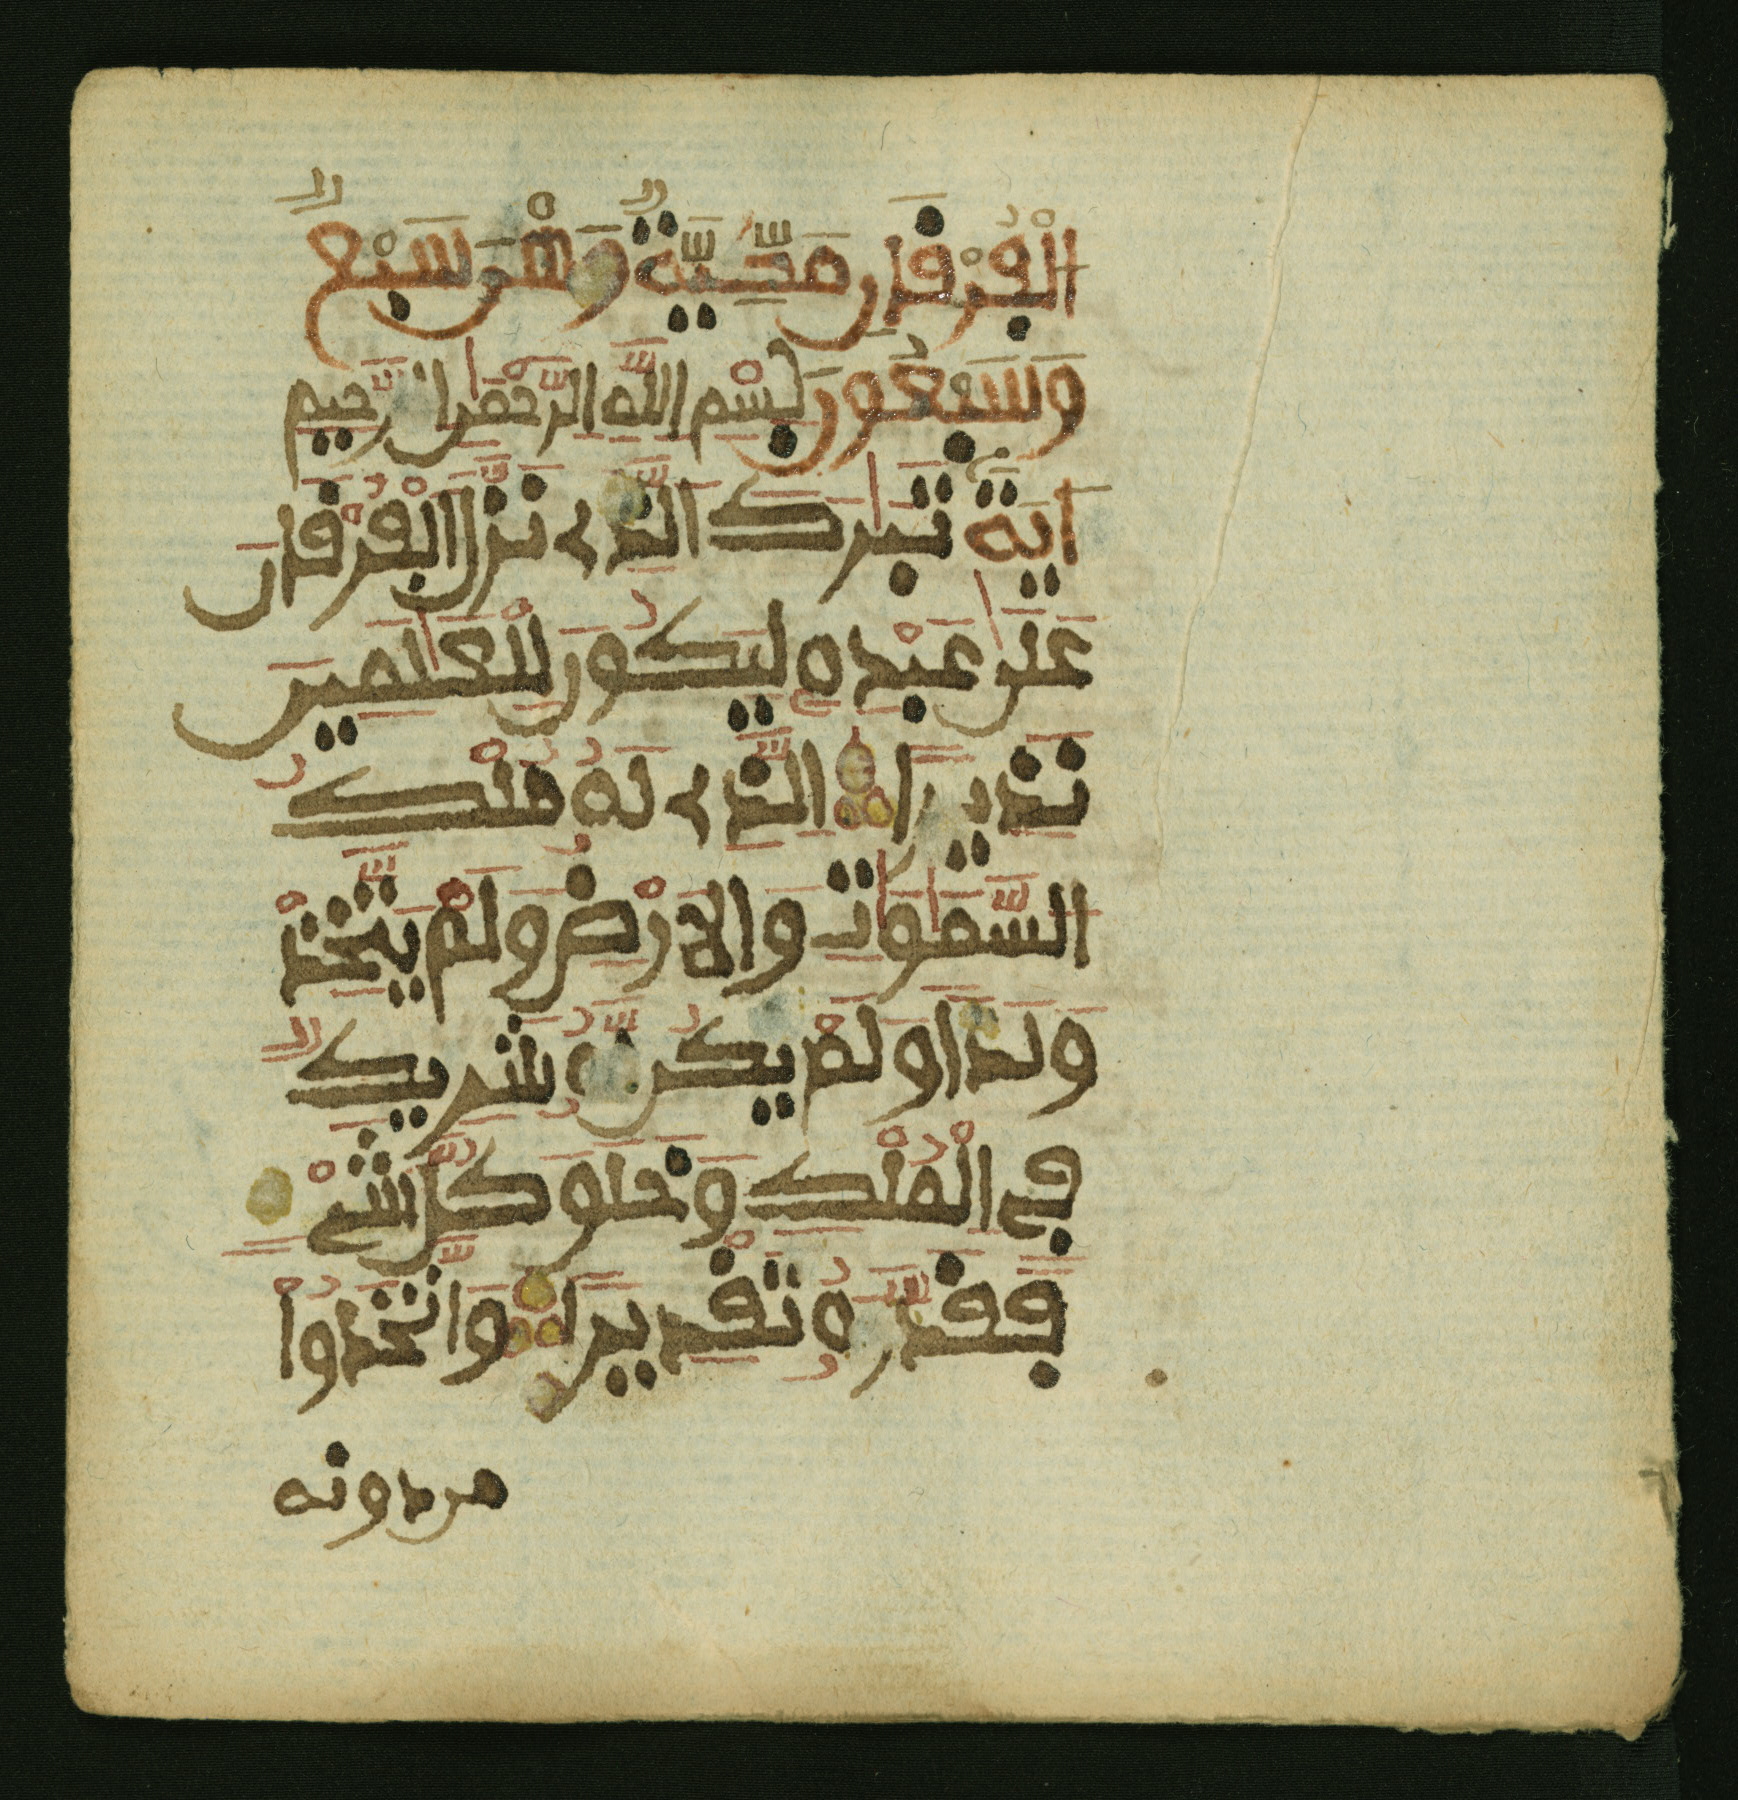 الْفُرْقَان مَكِّيَّةٌ وَهْىَ سَبْعٌ
وَسَبْعُونَ بِسْمِ اللَّهِ الرَّحْمَٰنِ الرَّحِيمِ
ايَةً تَبَٰرَكَ الَّذِے نَزَّلَ الْفُرْقَانَ
عَلَىٰ عَبْدِهِ لِيَكُونَ لِلْعَٰلَمِينَ
نَذِيرًا الَّذِے لَهُ مُلْكُ
السَّمَٰوَٰتِ وَالَارْضِ وَلَمْ يَتَّخِذْ
وَلَدًا وَلَمْ يَكُن لَّهُ شَرِيكٌ
فِے الْمُلْكِ وَخَلَقَ كُلَّ شَےْءٍ
فَقَدَّرَهُ تَقْدِيرًا وَاتَّخَذُواْ
من دونه